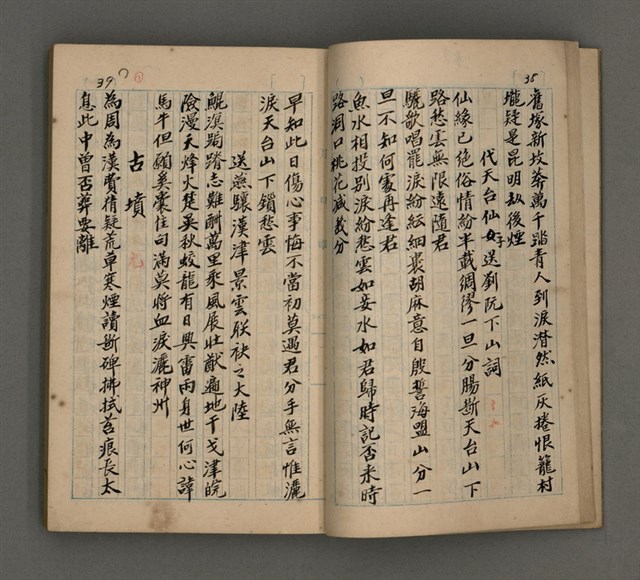 35
舊塚新坟葬萬千踏青人到淚潸然紙灰捲恨籠村
壠疑是昆明劫後煙
代天台仙女送劉阮下山詞
仙緣已絕俗情紛半載綢繆一旦分腸斷天台山下
路愁雲無限遠隨君
驪歌唱罷淚紛紛細裹胡麻意自殷誓海盟山分一
旦不知何處再逢君
魚水相投別淚紛愁雲如妾水如君歸時記否來時
路洞口桃花減幾分
39
早知此日傷心事悔不當初莫遇君分手無言惟灑
淚天台山下鎖愁雲
送燕驤漢津景雲联袂之大陸
鯤溟跼蹐志難酬萬里乘風展壯猷遍地干戈津皖
險漫天烽火楚吳秋蛟龍有日興雷雨身世何心諱
馬牛但願奚囊佳句滿莫將血淚灑神州
古墳
為周為漢費猜疑荒草寒煙讀斷碑拂拭苔痕長太
息此中曾否葬要離